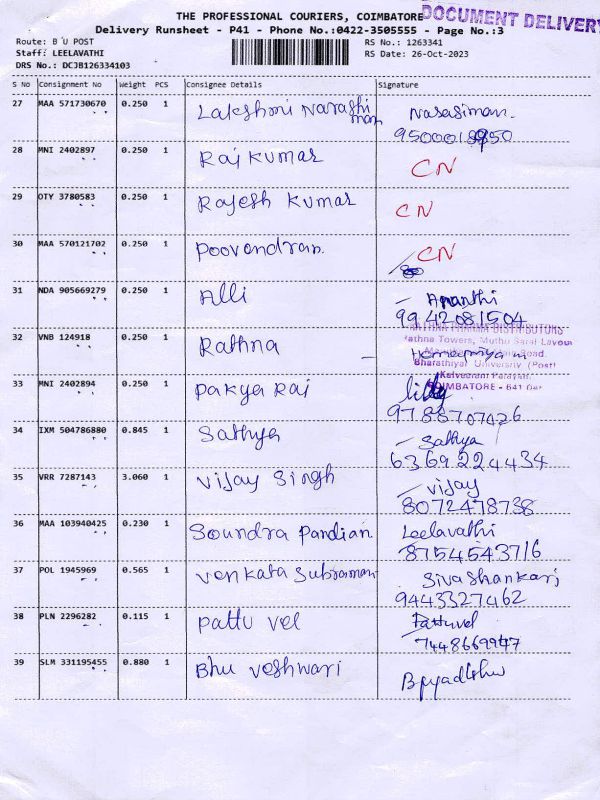 THE PROFESSIONAL COURIERS, COIMBATORE
DOCUMENT DELIVERY
Delivery Runsheet - P41 - Phone No.:0422-3505555 - Page No.:3
Route: B U POST
RS No.: 1263341
Staff: LEELAVATHI
RS Date: 26-Oct-2023
DRS No.: DCJB126334103
S No Consignment No Weight PCS Consignee Details Signature
27 MAA 571730670 0.250 1 Lakshmi Narashi
man
Narasiman.
28 MNI 2402897 0.250 1 Raj kumar CN
29 OTY 3780583 0.250 1 Rajesh kumar CN
30 MAA 570121702 0.250 1 Poovendran CN
31 NDA 905669279 0.250 1 Alli Ananthi
9942081504
32 VNB 124918 0.250 1 Rathna
RATHNA PHARMA DISTRIBUTORS
Rathna Towers, Muthu Saral Layout
Road.
Bharathiyar University (Post)
COIMBATORE - 641
33 MNI 2402894 0.250 1 Pakya Raj
9788707426
34 IXM 504786880 0.845 1 Sathya Sathya
6369224434
35 VRR 7287143 3.060 1 Vijay Singh Vijay
8072478738
36 MAA 103940425 0.230 1 Soundra Pandian Leelavathi
8754543716
37 POL 1945969 0.565 1 Venkata Subraman Sivashankari
9443327462
38 PLN 2296282 0.115 1 Pattu vel Pattuvel
7448669947
39 SLM 331195455 0.880 1 Bhu veshwari